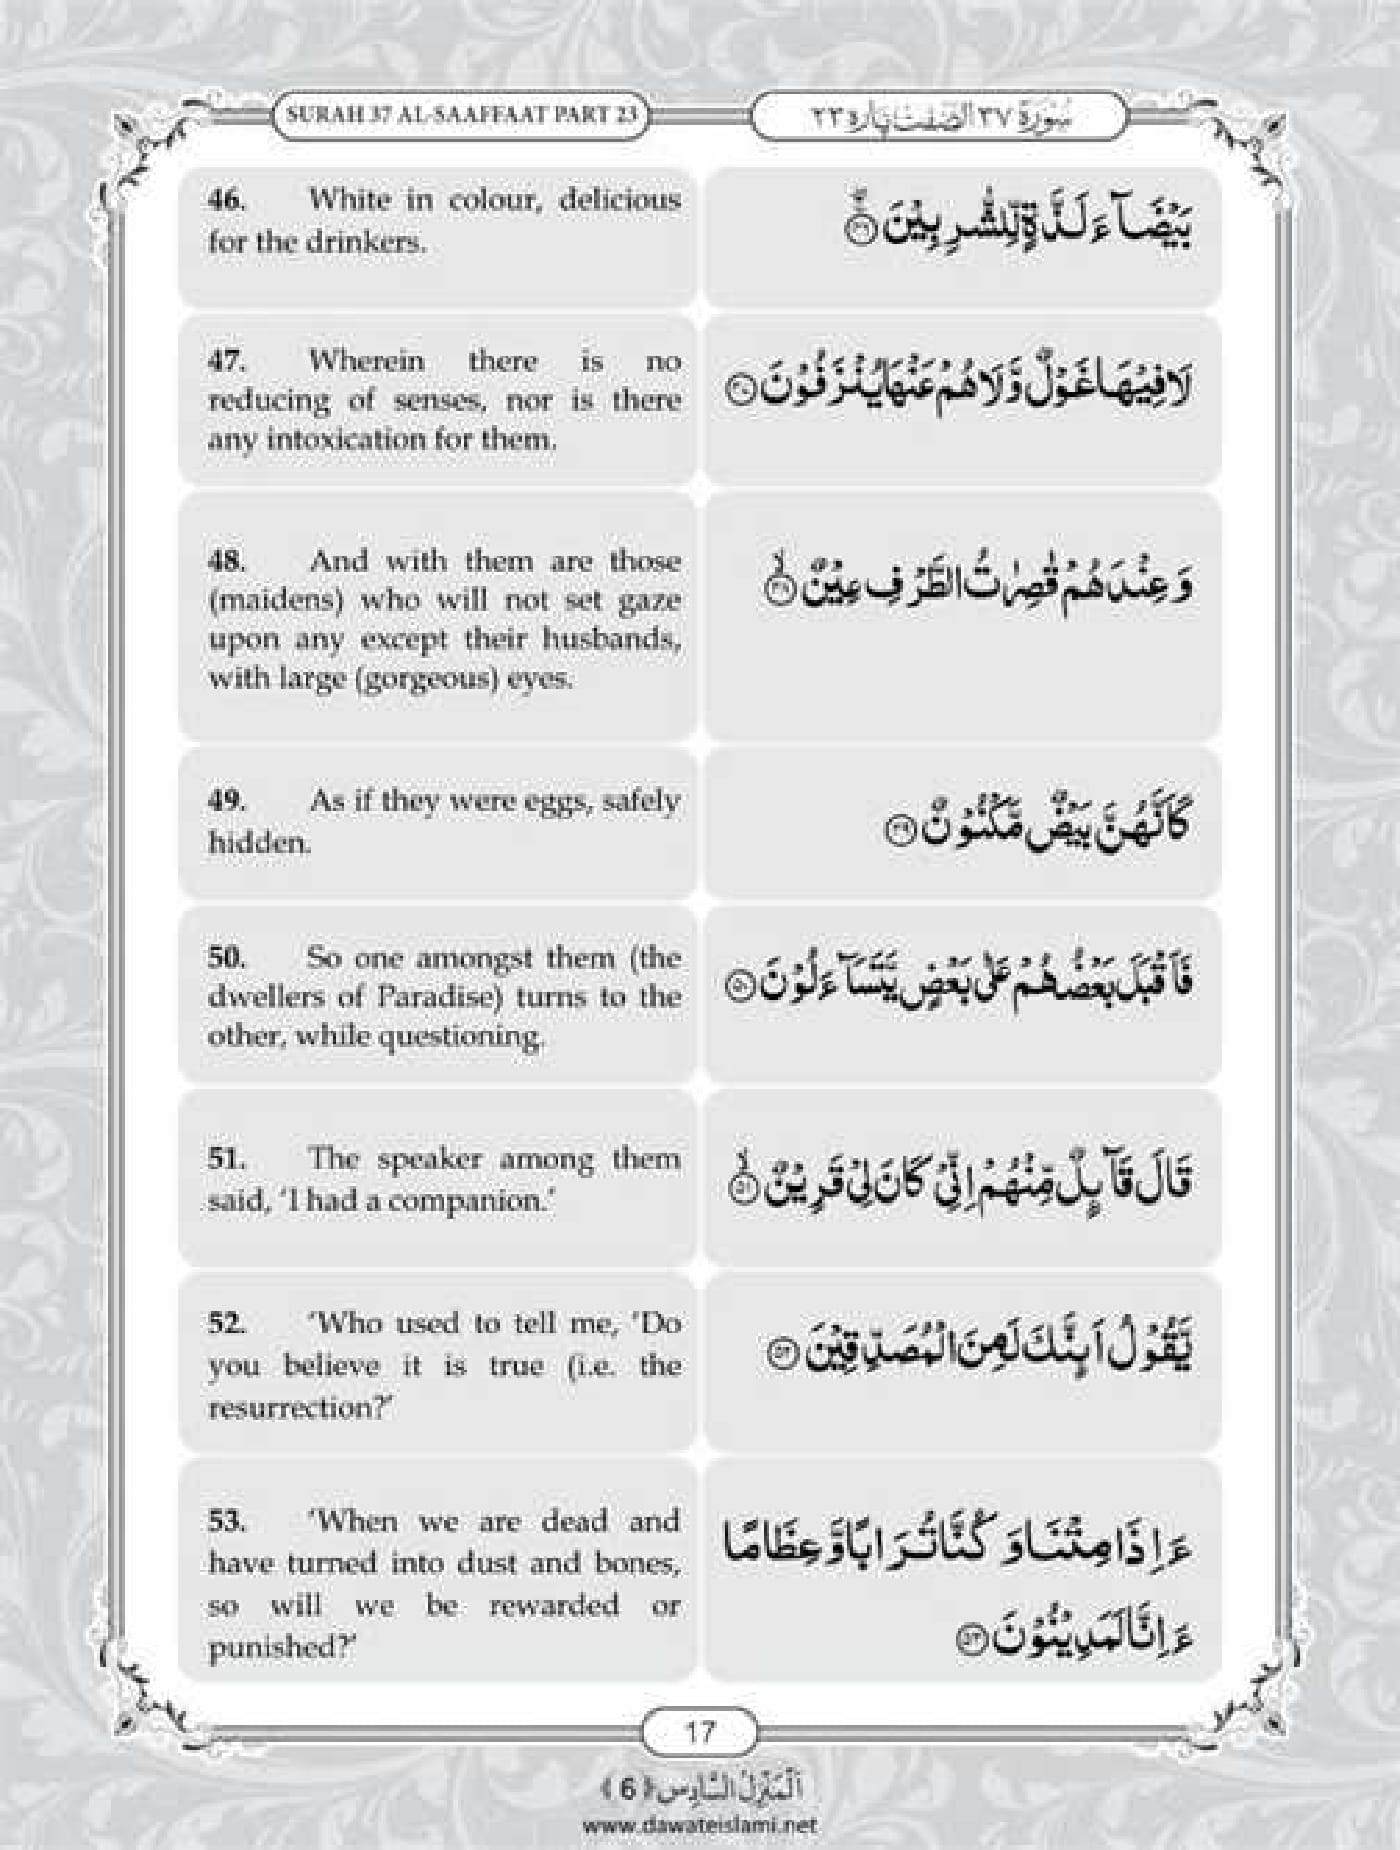 SURAH 37 AL-SAAFFAAT PART 23
سُورَة ٣٧ الصّٰفّٰت پَارہ ٢٣
46. White in colour, delicious
for the drinkers.
بَيْضَآءَ لَذَّةٍ لِّلشّٰرِبِيْنَ ﴿٤٦﴾
47. Wherein there is no
reducing of senses, nor is there
any intoxication for them.
لَا فِيْهَا غَوْلٌ وَّلَا هُمْ عَنْهَا يُنْزَفُوْنَ ﴿٤٧﴾
48. And with them are those
(maidens) who will not set gaze
upon any except their husbands,
with large (gorgeous) eyes.
وَعِنْدَهُمْ قٰصِرٰتُ الطَّرْفِ عِيْنٌ ﴿٤٨﴾
49. As if they were eggs, safely
hidden.
كَاَنَّهُنَّ بَيْضٌ مَّكْنُوْنٌ ﴿٤٩﴾
50. So one amongst them (the
dwellers of Paradise) turns to the
other, while questioning.
فَاَقْبَلَ بَعْضُهُمْ عَلٰى بَعْضٍ يَّتَسَآءَلُوْنَ ﴿٥٠﴾
51. The speaker among them
said, ‘I had a companion.’
قَالَ قَآىِٕلٌ مِّنْهُمْ اِنِّيْ كَانَ لِيْ قَرِيْنٌ ﴿٥١﴾
52. ‘Who used to tell me, ‘Do
you believe it is true (i.e. the
resurrection?’
يَّقُوْلُ اَىِٕنَّكَ لَمِنَ الْمُصَدِّقِيْنَ ﴿٥٢﴾
53. ‘When we are dead and
have turned into dust and bones,
so will we be rewarded or
punished?’
ءَاِذَا مِتْنَا وَكُنَّا تُرَابًا وَّعِظَامًا
ءَاِنَّا لَمَدِيْنُوْنَ ﴿٥٣﴾
17
اَلْمَنْزِلُ السَّادِس ﴿6﴾
www.dawateislami.net